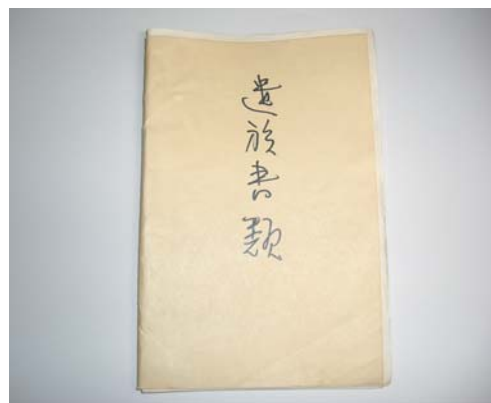 遺族書類